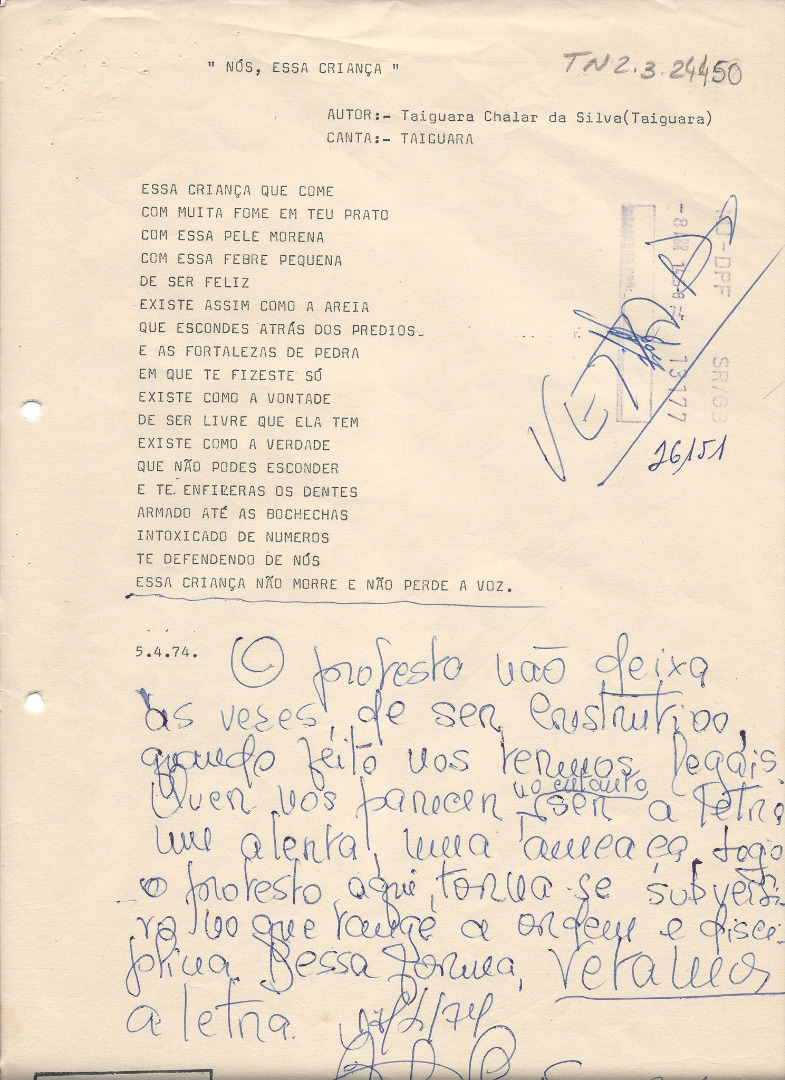 " NÓS, ESSA CRIANÇA "
TN 2.3.24450
AUTOR:- Taiguara Chalar da Silva(Taiguara)
CANTA:- TAIGUARA
ESSA CRIANÇA QUE COME
COM MUITA FOME EM TEU PRATO
COM ESSA PELE MORENA
COM ESSA FEBRE PEQUENA
DE SER FELIZ
EXISTE ASSIM COMO A AREIA
QUE ESCONDES ATRÁS DOS PREDIOS
E AS FORTALEZAS DE PEDRA
EM QUE TE FIZESTE SÓ
EXISTE COMO A VONTADE
DE SER LIVRE QUE ELA TEM
EXISTE COMO A VERDADE
QUE NÃO PODES ESCONDER
E TE ENFILERAS OS DENTES
ARMADO ATÉ AS BOCHECHAS
INTOXICADO DE NUMEROS
TE DEFENDENDO DE NÓS
ESSA CRIANÇA NÃO MORRE E NÃO PERDE A VOZ.
DPF SR/GB
13177
VETADO
26151
5.4.74.
O protesto não deixa
as vezes, de ser construtivo,
quando feito nos termos legais.
no entanto
parecer ser a letra
um alerta, uma ameaça, logo
o protesto aqui, torna-se subversi-
vo no que tange a ordem e disci-
plina. Dessa forma, vetamos
a letra. /74